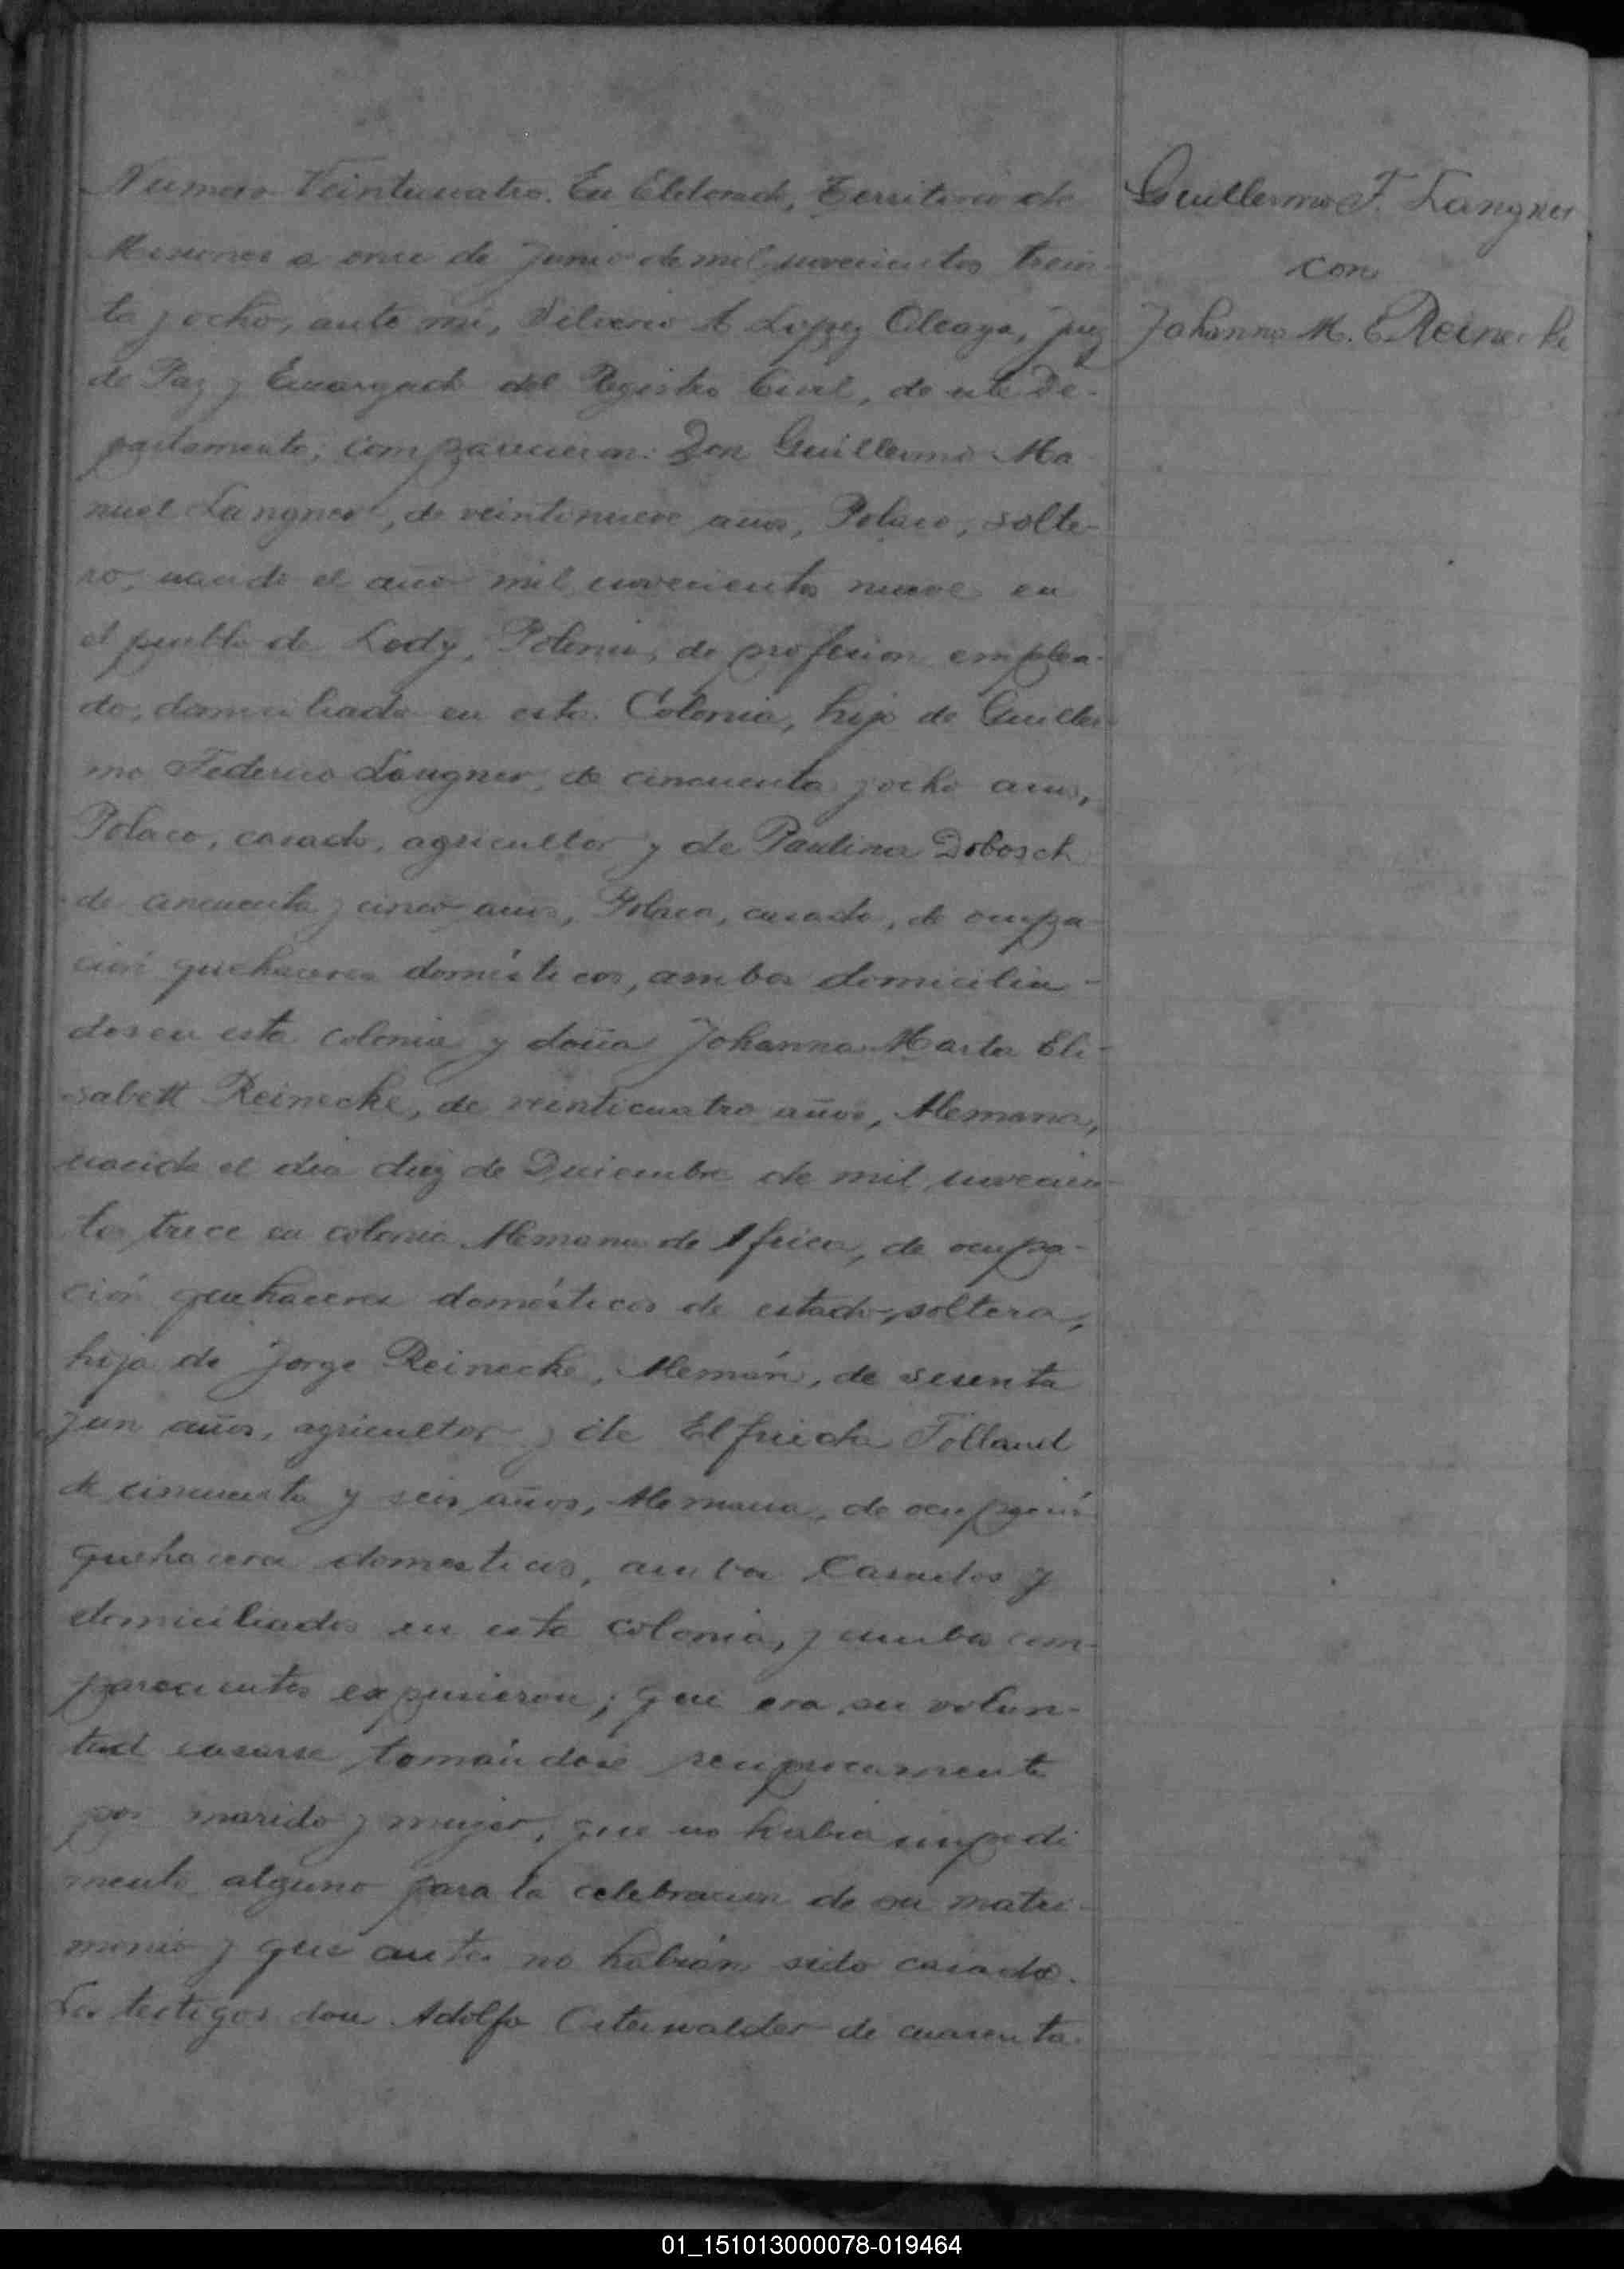 Numero Veinticuatro. En Eldorado, Territorio de
Misiones a once de Junio de mil novecientos trein-
ta y ocho, ante mi, Silverio A Lopez Alcaya, Juez
de Paz y Encargado del Registro Civil, de este De-
partamento; comparecieron: Don Guillermo Ma-
nuel Langner, de veintinueve años, Polaco, solte-
ro, nacido el año mil novecientos nueve en
el pueblo de Lody, Polonia, de profesion emplea-
do, domiciliado en esta Colonia, hijo de Guiller-
mo Federico Langner, de cincuenta y ocho años,
Polaco, casado, agricultor y de Paulina Dobosch
de cincuenta y cinco años, Polaca, casada, de ocupa-
ción quehaceres domésticos, ambos domicilia-
dos en esta colonia y doña Johanna Marta Eli-
sabett Reinecke, de veinticuatro años, Alemana,
nacida el dia diez de Diciembre de mil novecien-
tos trece en colonia Alemana de Africa, de ocupa-
ción quehaceres domésticos de estado soltera,
hija de Jorge Reinecke, Alemán, de sesenta
y un años, agricultor y de Elfrieda Tolland
de cincuenta y seis años, Alemana, de ocupación
quehaceres domesticos, ambos Casados y
domiciliados en esta colonia, y ambos com-
parecientes expusieron; que era su volun-
tad casarse tomándose reciprocamente
por marido y mujer, que no habia impedi
mento alguno para la celebracion de su matri-
monio y que antes no habián sido casados.
Los testigos don Adolfo de cuarenta
Guillermo F. Langner
con
Johanna M. E Reinecke
01_151013000078-019464